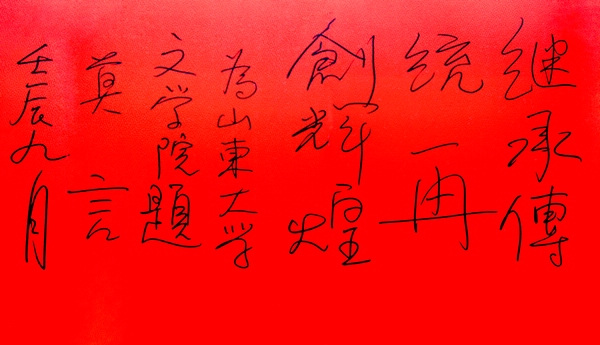 继承傳
统再
創輝煌
為山東大学
文学院題
莫言
壬辰九月